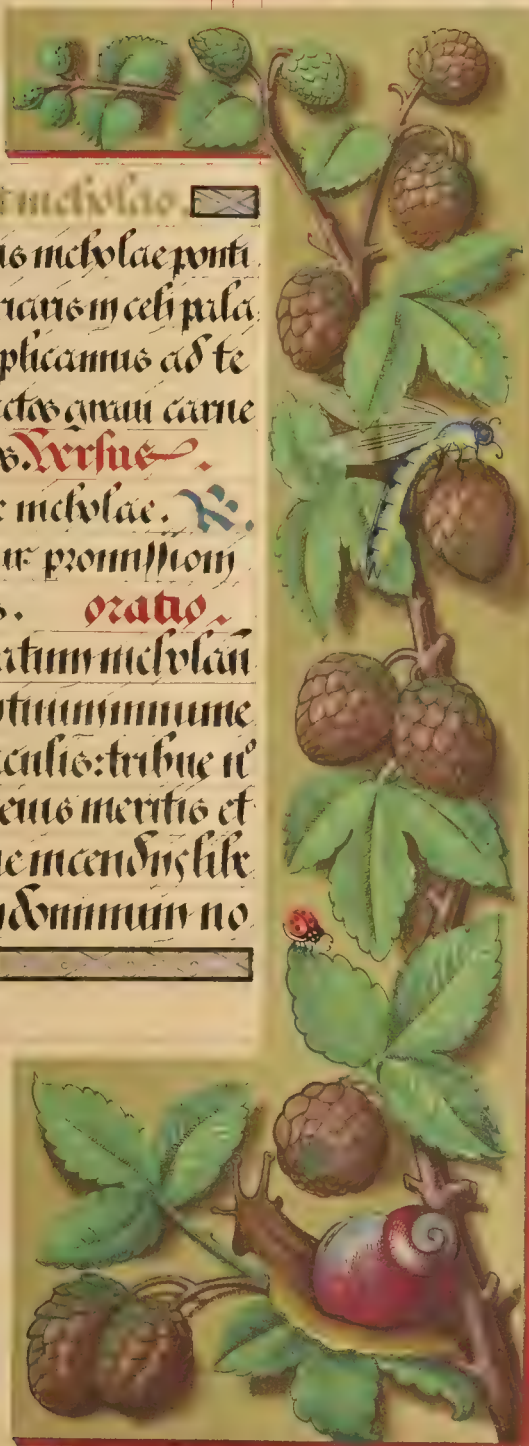 nicholao.
us nicholae ponti
riaris in celi pala
plicamus ad te
ctos graui carne
s. Versus.
c nicholae. R.
ur promissioni
s. oratio.
atum nicholaū
ntium innume
aculis: tribue nᵒ
eius meritis et
ne incendijs libe
ndominum no